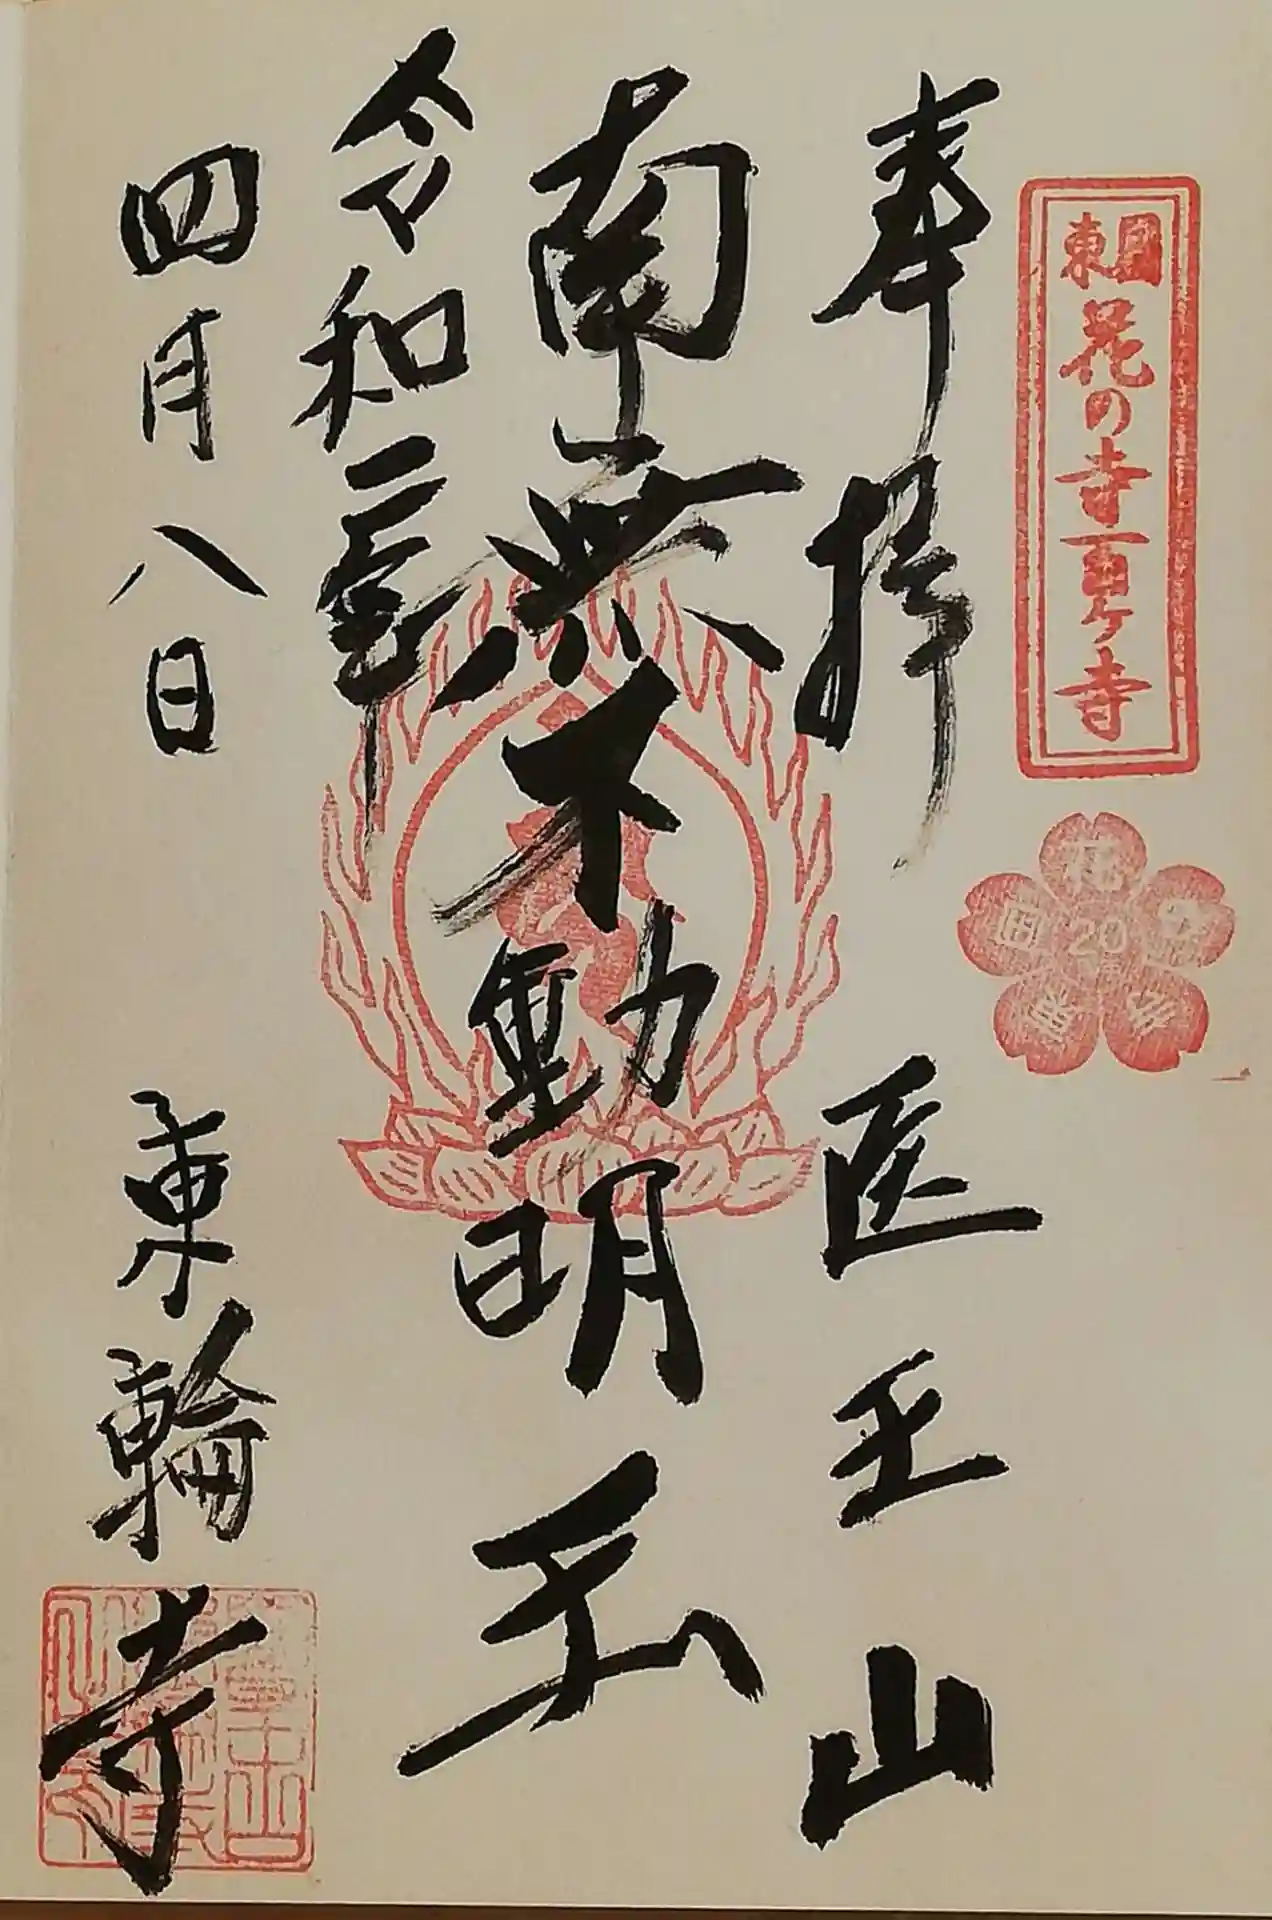 東国
花の寺百ヶ寺
花の寺東国
20
奉拝　医王山
南無不動明王
令和 年
四月八日　東輪寺